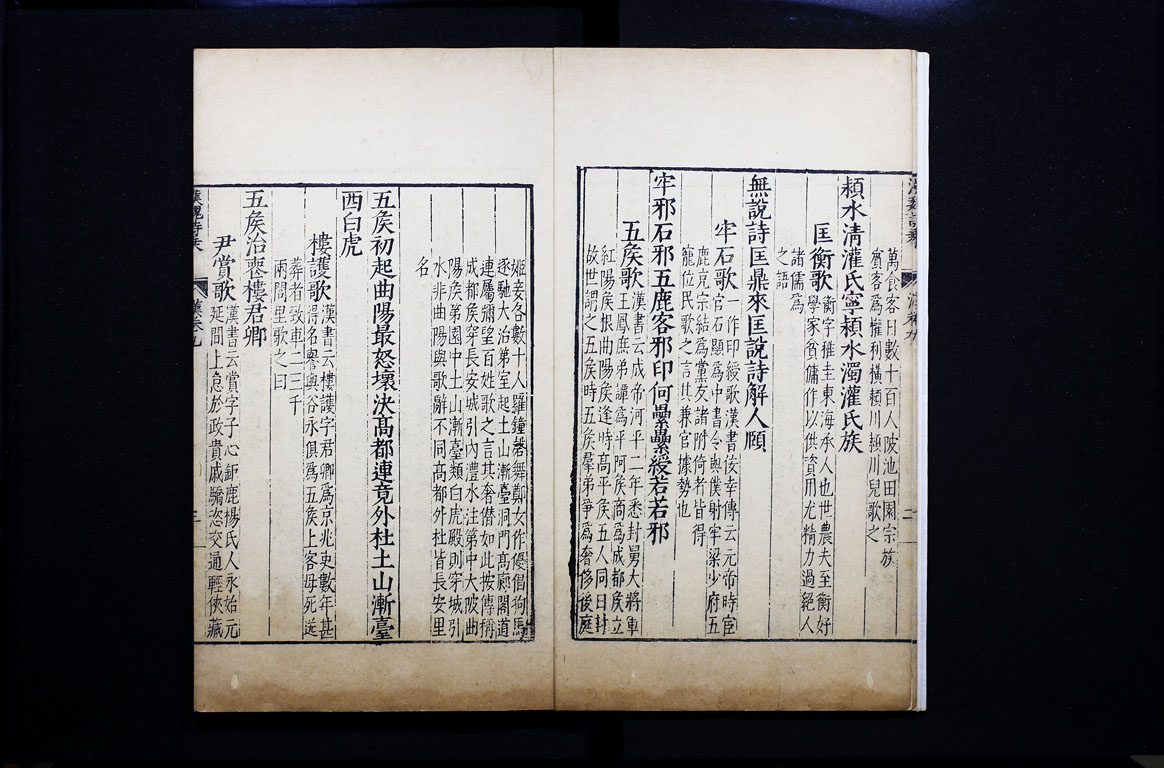 萬食客日數十百人陂池田園宗族
賓客爲權利橫潁川潁川兒歌之
潁水清灌氏寧潁水濁灌氏族
匡衡歌
衡字稚圭東海承人也世農夫至衡好
學家貧傭作以供資用尤精力過絕人
諸儒爲
之語
無說詩匡鼎來匡說詩解人頤
牢石歌
一作印綬歌漢書佞幸傳云元帝時宦
官石顯爲中書令與僕射牢梁少府五
鹿充宗結爲黨友諸附倚者皆得
寵位民歌之言其兼官據勢也
牢邪石邪五鹿客邪印何纍纍綬若若邪
五矦歌
漢書云成帝河平二年悉封舅大將軍
王鳳庶弟譚爲平阿矦商爲成都矦立
紅陽矦根曲陽矦逢時高平矦五人同日封
故世謂之五矦時五矦羣弟爭爲奢侈後庭
姬妾各數十人羅鐘磬舞鄭女作優倡狗馬
逐馳大治第室起土山漸臺洞門高廊閣道
連屬彌望百姓歌之言其奢僭如此按傳稱
成都矦穿長安城引內灃水注第中大陂曲
陽矦第園中土山漸臺類白虎殿則穿城引
水非曲陽與歌辭不同高都外杜皆長安里
名
五矦初起曲陽最怒壞決高都連竟外杜土山漸臺
西白虎
樓護歌
漢書云樓護字君卿爲京兆吏數年甚
得名譽與谷永俱爲五矦上客母死送
葬者致車二三千
兩閭里歌之曰
五矦治喪樓君卿
尹賞歌
漢書云賞字子心鉅鹿楊氏人永始元
延間上怠於政貴戚驕恣交通輕俠藏
漢魏詩乘
漢卷九
三